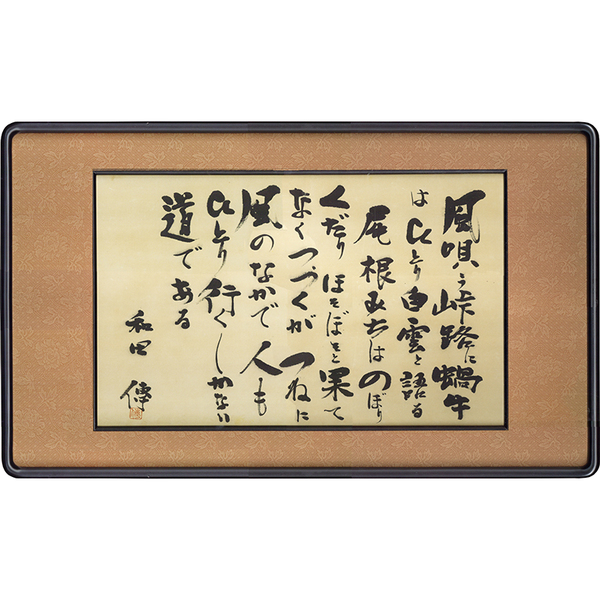 風唄う峠路に蝸牛
はひとり白雲と語る
尾根みちはのぼり
くだりほそぼそと果て
なくつづくがつねに
風のなかで人も
ひとり行くしかない
道である
和田傳